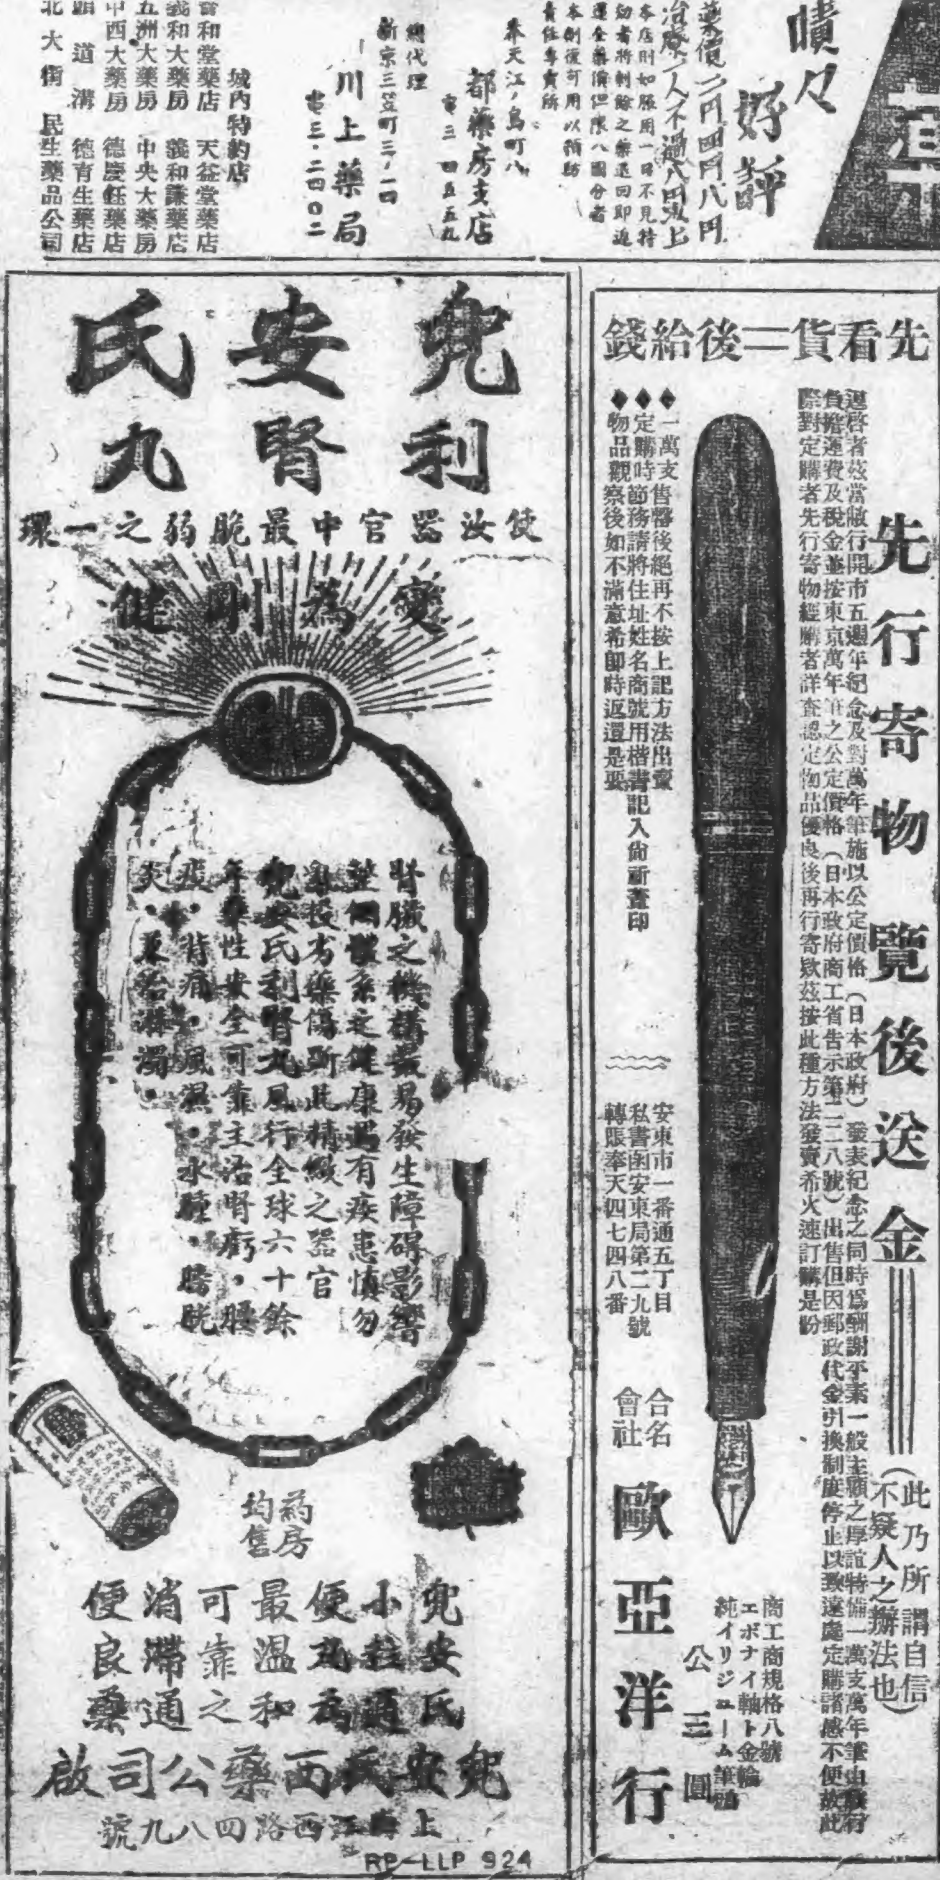 嘖々
好評
藥價二円四円八円
治療一人不過八円以上
本店則如服用一日不見特
効者將剩餘之藥返回即返
還金藥價但限八國分者
本劑復可用以預防
責任專賣所
奉天江ノ島町八
都藥房支店
電三・四五五九
總代理
新京三笠町三ノ一四
川上藥局
電三・二四〇二
城内特約店
天益堂藥店
義和大藥房 義和謙藥店
五洲大藥房 中央大藥房
中西大藥房 德慶鈺藥店
頭道溝 德育生藥店
北大街 民生藥品公司
先看貨=後給錢
先行寄物覽後送金
(此乃所謂自信
不疑人之辦法也)
逕啓者茲當敝行開市五週年紀念及對萬年筆施以公定價格(日本政府)發表紀念之同時爲酬謝平素一般主顧之厚誼特備一萬支萬年筆由敝行
負擔運費及稅金並按東京萬年筆之公定價格(日本政府商工省告示第二二八號)出售但因郵政代金引換制度停止以致遠處定購諸感不便故此
際對定購者先行寄物經購者詳查認定物品優良後再行寄欵茲按此種方法發賣希火速訂購是盼
商工商規格八號
エボナイ軸ト金輪
純イリジューム筆頭
公三圓
◆一萬支售罄後絕再不按上記方法出賣
◆定購時節務請將住址姓名商號用楷書記入尙祈蓋印
◆物品觀察後如不滿意希即時返還是要
安東市一番通五丁目
私書函安東局第二九號
轉賬奉天四七四八番
合名會社
歐亞洋行
兜安氏
利腎丸
使汝器官中最脆弱之一環
變為剛健
腎臟之機構最易發生障碍影響
整個體系之健康遇有疾患慎勿
亂投劣藥傷斯此精緻之器官
兜安氏利腎丸風行全球六十餘
年藥性安全可靠主治腎虧・腰
痠・背痛・風濕・水腫・膀胱
炎・兼治淋濁・
药房均售
兜安氏
小粒通
便丸為
最溫和
可靠之
消滯通
便良藥
兜安氏西藥公司啟
上海江西路四八九號
RP-LLP 924